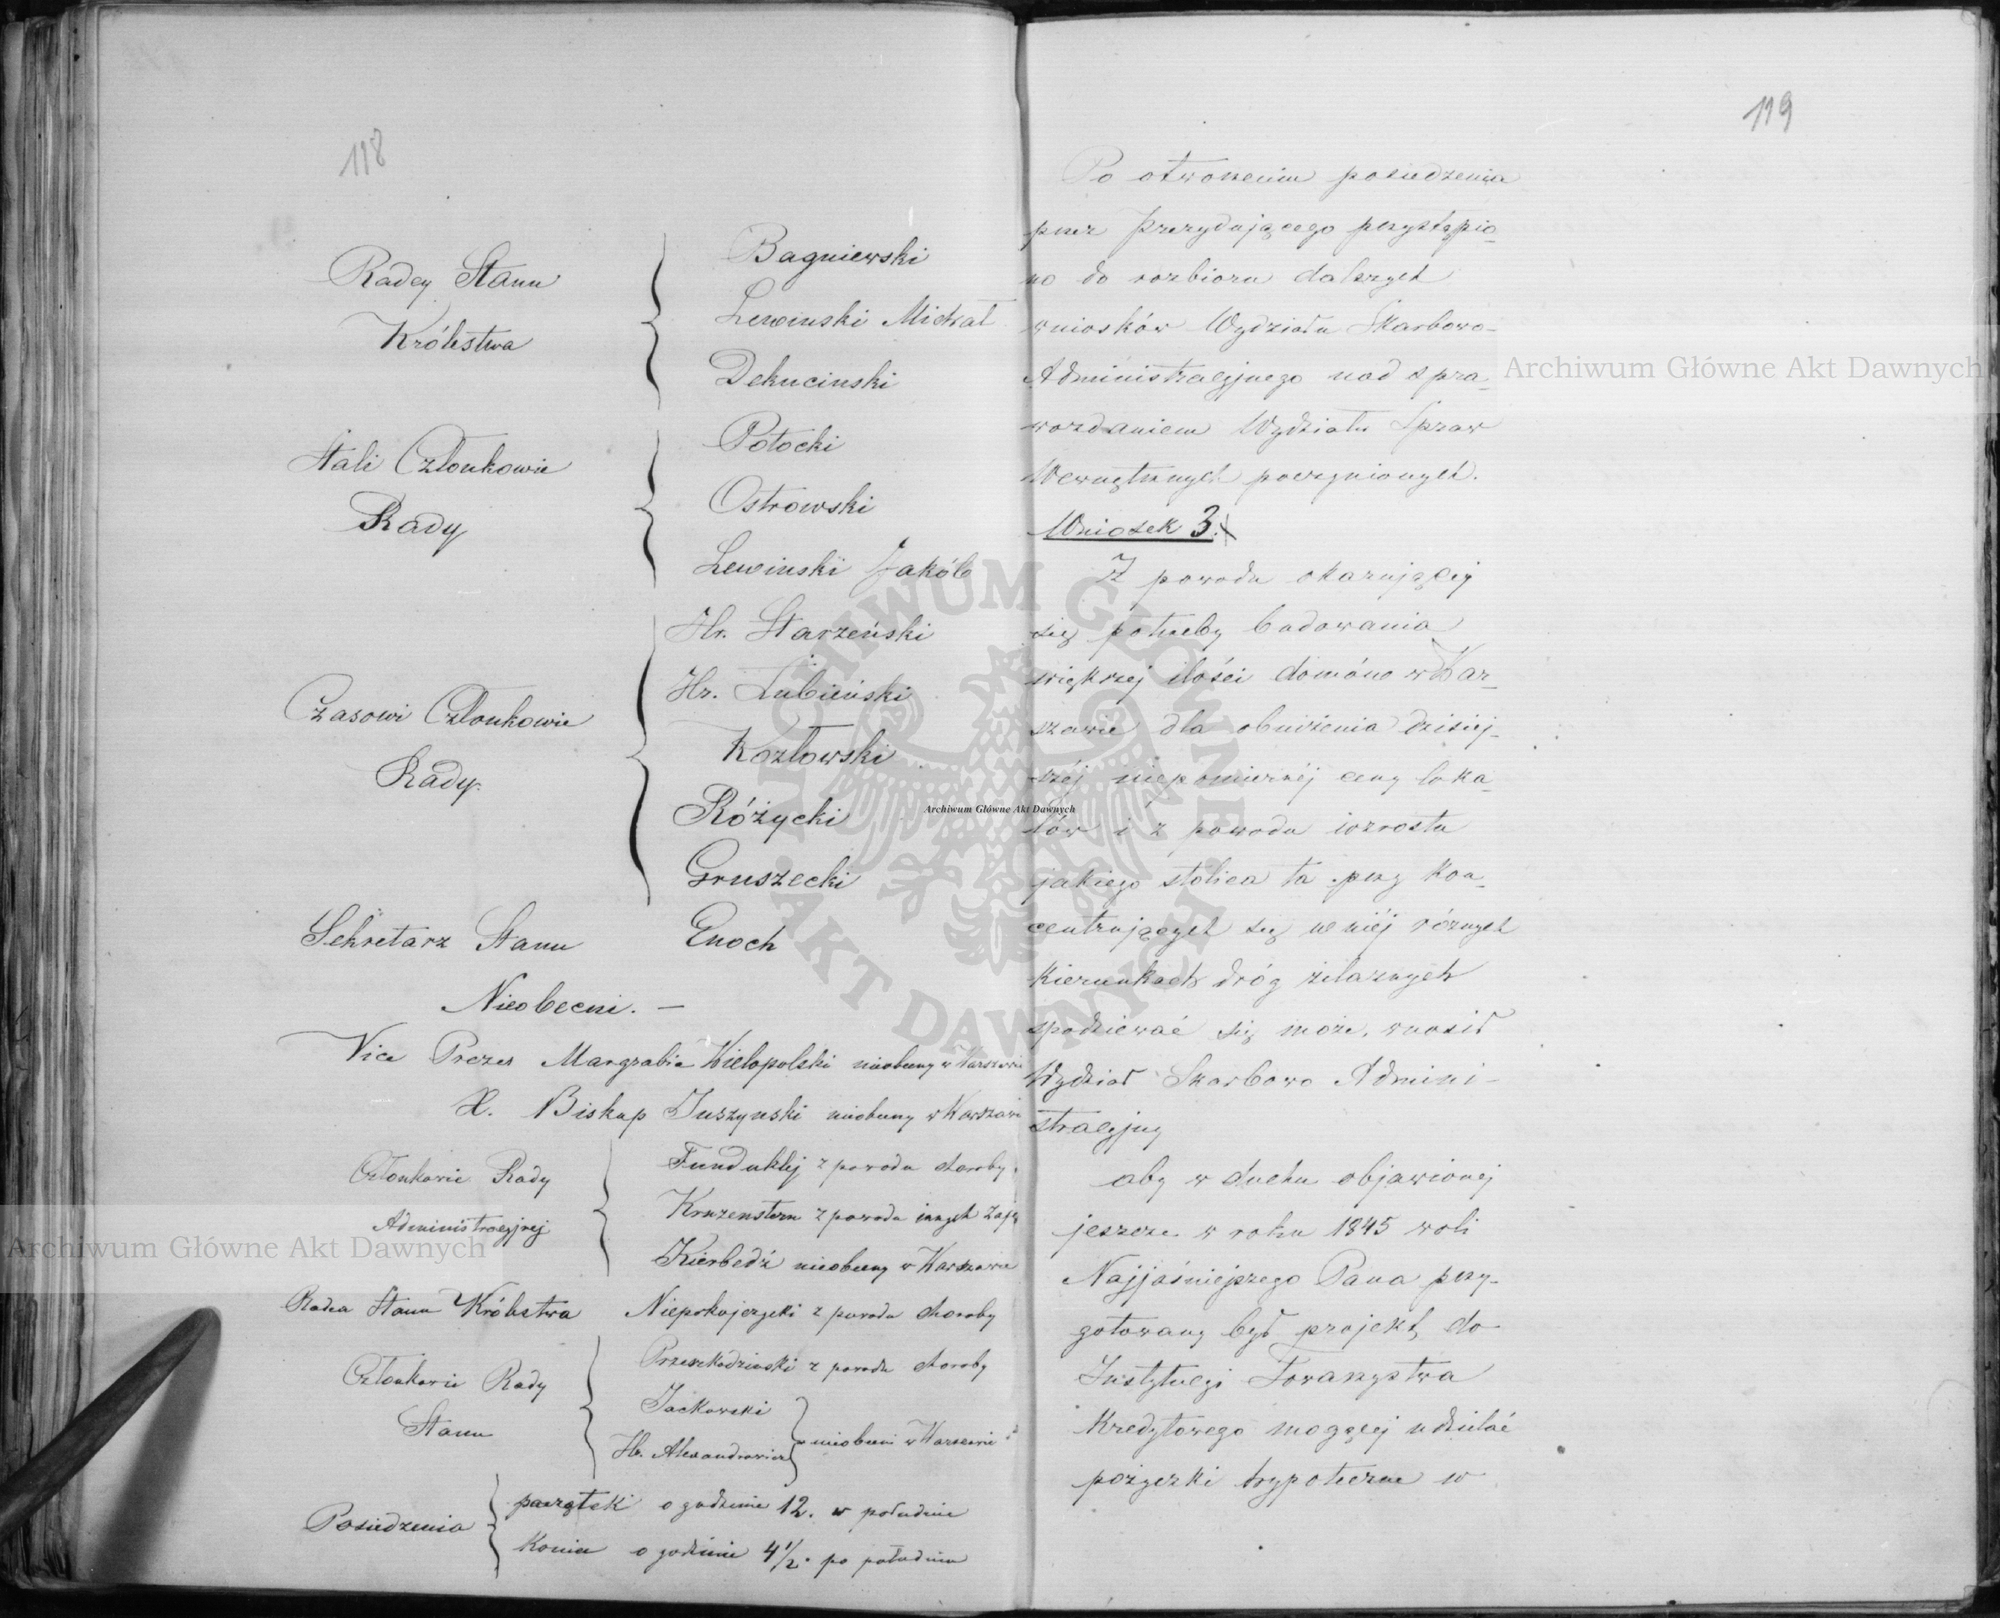 118
Radcy Stanu
Królestwa
Bagniewski
Lewinski Michał
Dekucinski
Stali Członkowie
Rady
Potocki
Ostrowski
Lewinski Jakób
Czasowi Członkowie
Rady.
Hr. Starzeński
Hr. Łubieński
Kozłowski
Różycki
Gruszecki
Sekretarz Stanu Enoch
Nieobecni. —
Vice Prezes Margrabia Wielopolski nieobecny w Warszawie
X. Biskup Juszynski nieobecny w Warszawie
Członkowie Rady
Administracyjnej
Funduklej z powodu choroby.
Kruzenstern z powodu innych zaję
Kierbedź nieobecny w Warszawie
Radca Stanu Królestwa Niepokojczycki z powodu choroby
Członkowie Rady
Stanu
Przeszkodzinski z powodu choroby
Jackowski
Hr. Alexandrowicz
nieobecni w Warszawie
Posiedzenia
początek o godzinie 12. w południe
Koniec o godzinie 4 1/2. po południu
119
Po otworzeniu posiedzenia
przez Prezydującego przystąpio-
no do rozbioru dalszych
wniosków Wydziału Skarbowo-
Administracyjnego nad spra-
wozdaniem Wydziału Spraw
Wewnętrznych poczynionych.
Wniosek 3.
Z powodu okazującej
się potrzeby budowania
większej ilości domów w War-
szawie dla obniżenia dzisiej-
széj niepomiernéj ceny loka-
lów i z powodu wzrostu
jakiego stolica ta przy kon-
centrujących się w niéj różnych
kierunkach dróg żelaznych
spodziewać się może, wnosił
Wydział Skarbowo Admini-
stracyjny
aby w duchu objawionej
jeszcze w roku 1845 woli
Najjaśniejszego Pana przy-
gotowany był projekt do
Instytucyi Towarzystwa
Kredytowego mogącej udzielać
pożyczki hypoteczne w
Archiwum Główne Akt Dawnych
Archiwum Główne Akt Dawnych
Archiwum Główne Akt Dawnych
ARCHIWUM GŁÓWNE AKT DAWNYCH